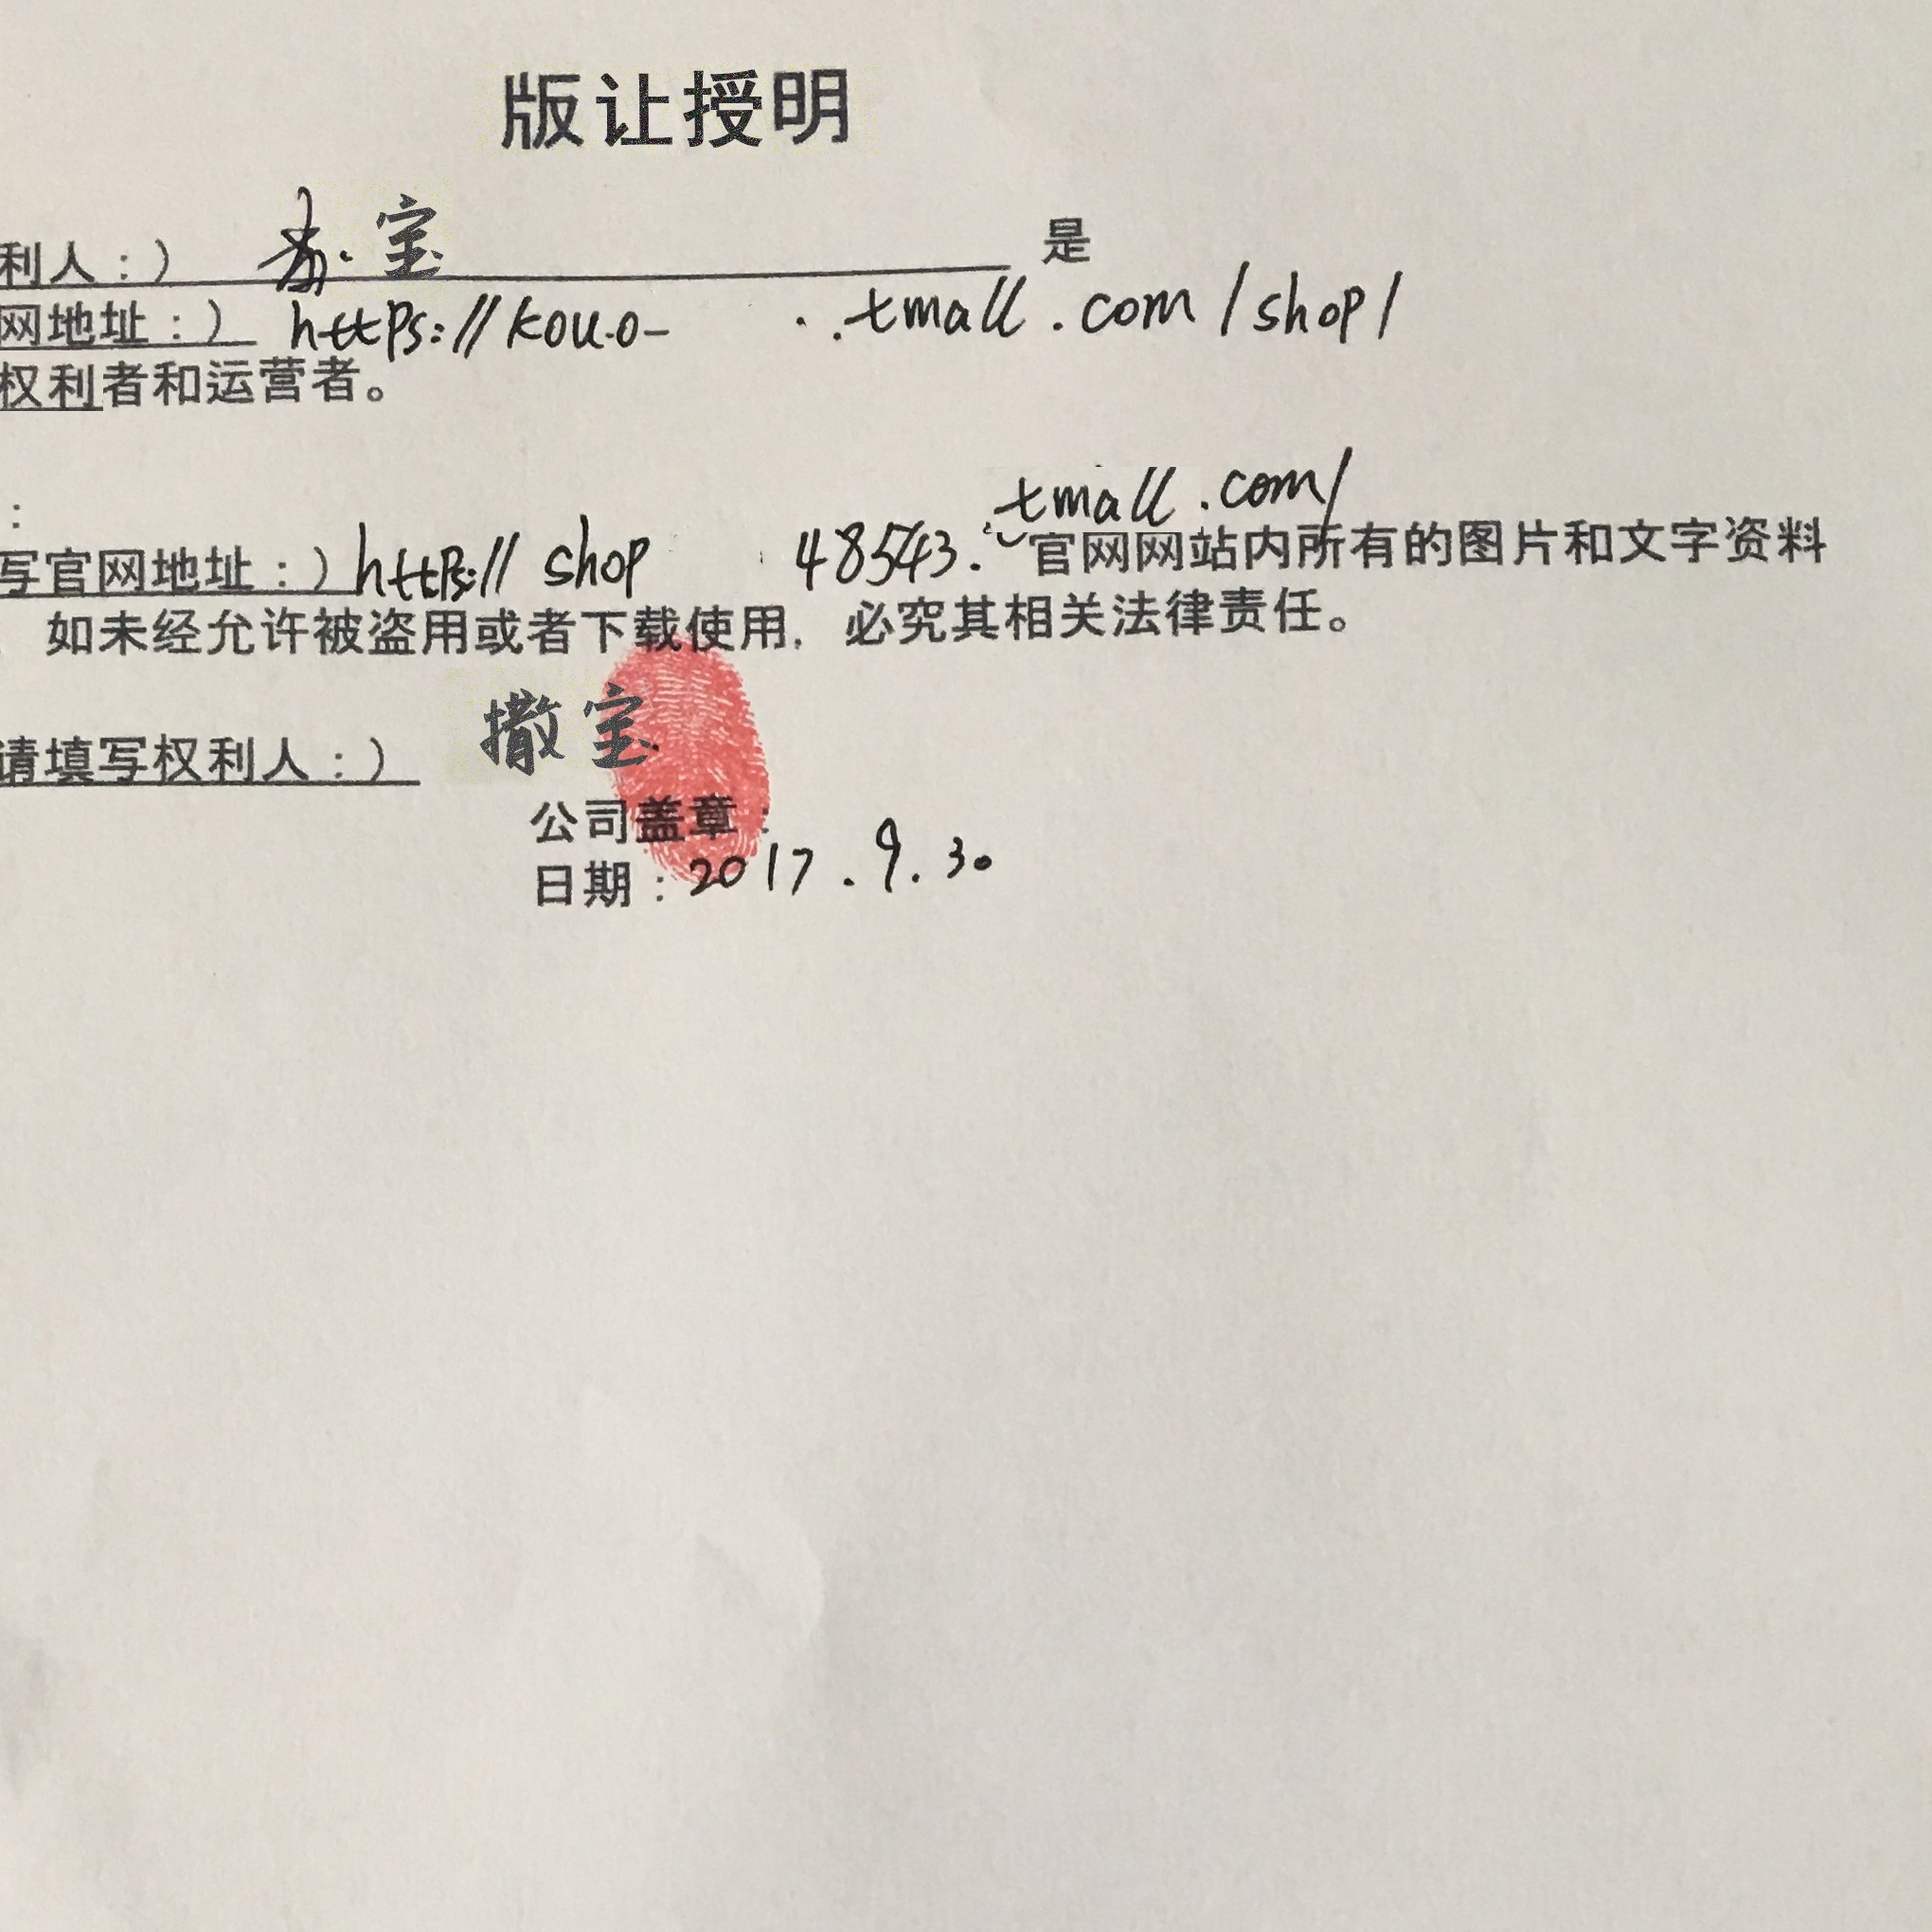 版让授明
利人：） 宝 是
网地址：） https://kou.o- ..tmall.com/shop/
权利者和运营者。
：
tmall.com/
写官网地址：）https:// shop 48543. 官网网站内所有的图片和文字资料
如未经允许被盗用或者下载使用, 必究其相关法律责任。
请填写权利人：） 撒宝
公司盖章：
日期：2017.9.30